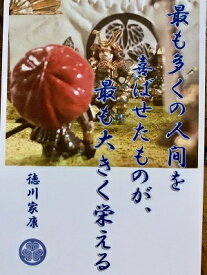 最も多くの人間を
喜ばせたものが、
最も大きく栄える
徳川家康